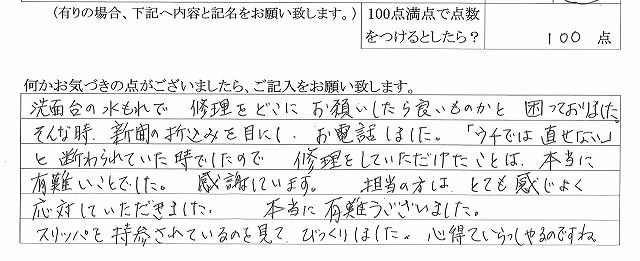 (有りの場合、下記へ内容と記名をお願い致します。)
100点満点で点数
をつけるとしたら？
100 点
何かお気づきの点がございましたら、ご記入をお願い致します。
洗面台の水もれで 修理をどこに お願いしたら良いものかと 困っておりました
そんな時、新聞の折込みを目にし、お電話しました。「ウチでは直せない」
と断わられていた時でしたので 修理をしていただけたことは、本当に
有難いことでした。 感謝しています。 担当の方は、とても感じよく
応対していただきました。 本当に有難うございました。
スリッパを持参されているのを見て、びっくりしました。心得ていらっしゃるのですね